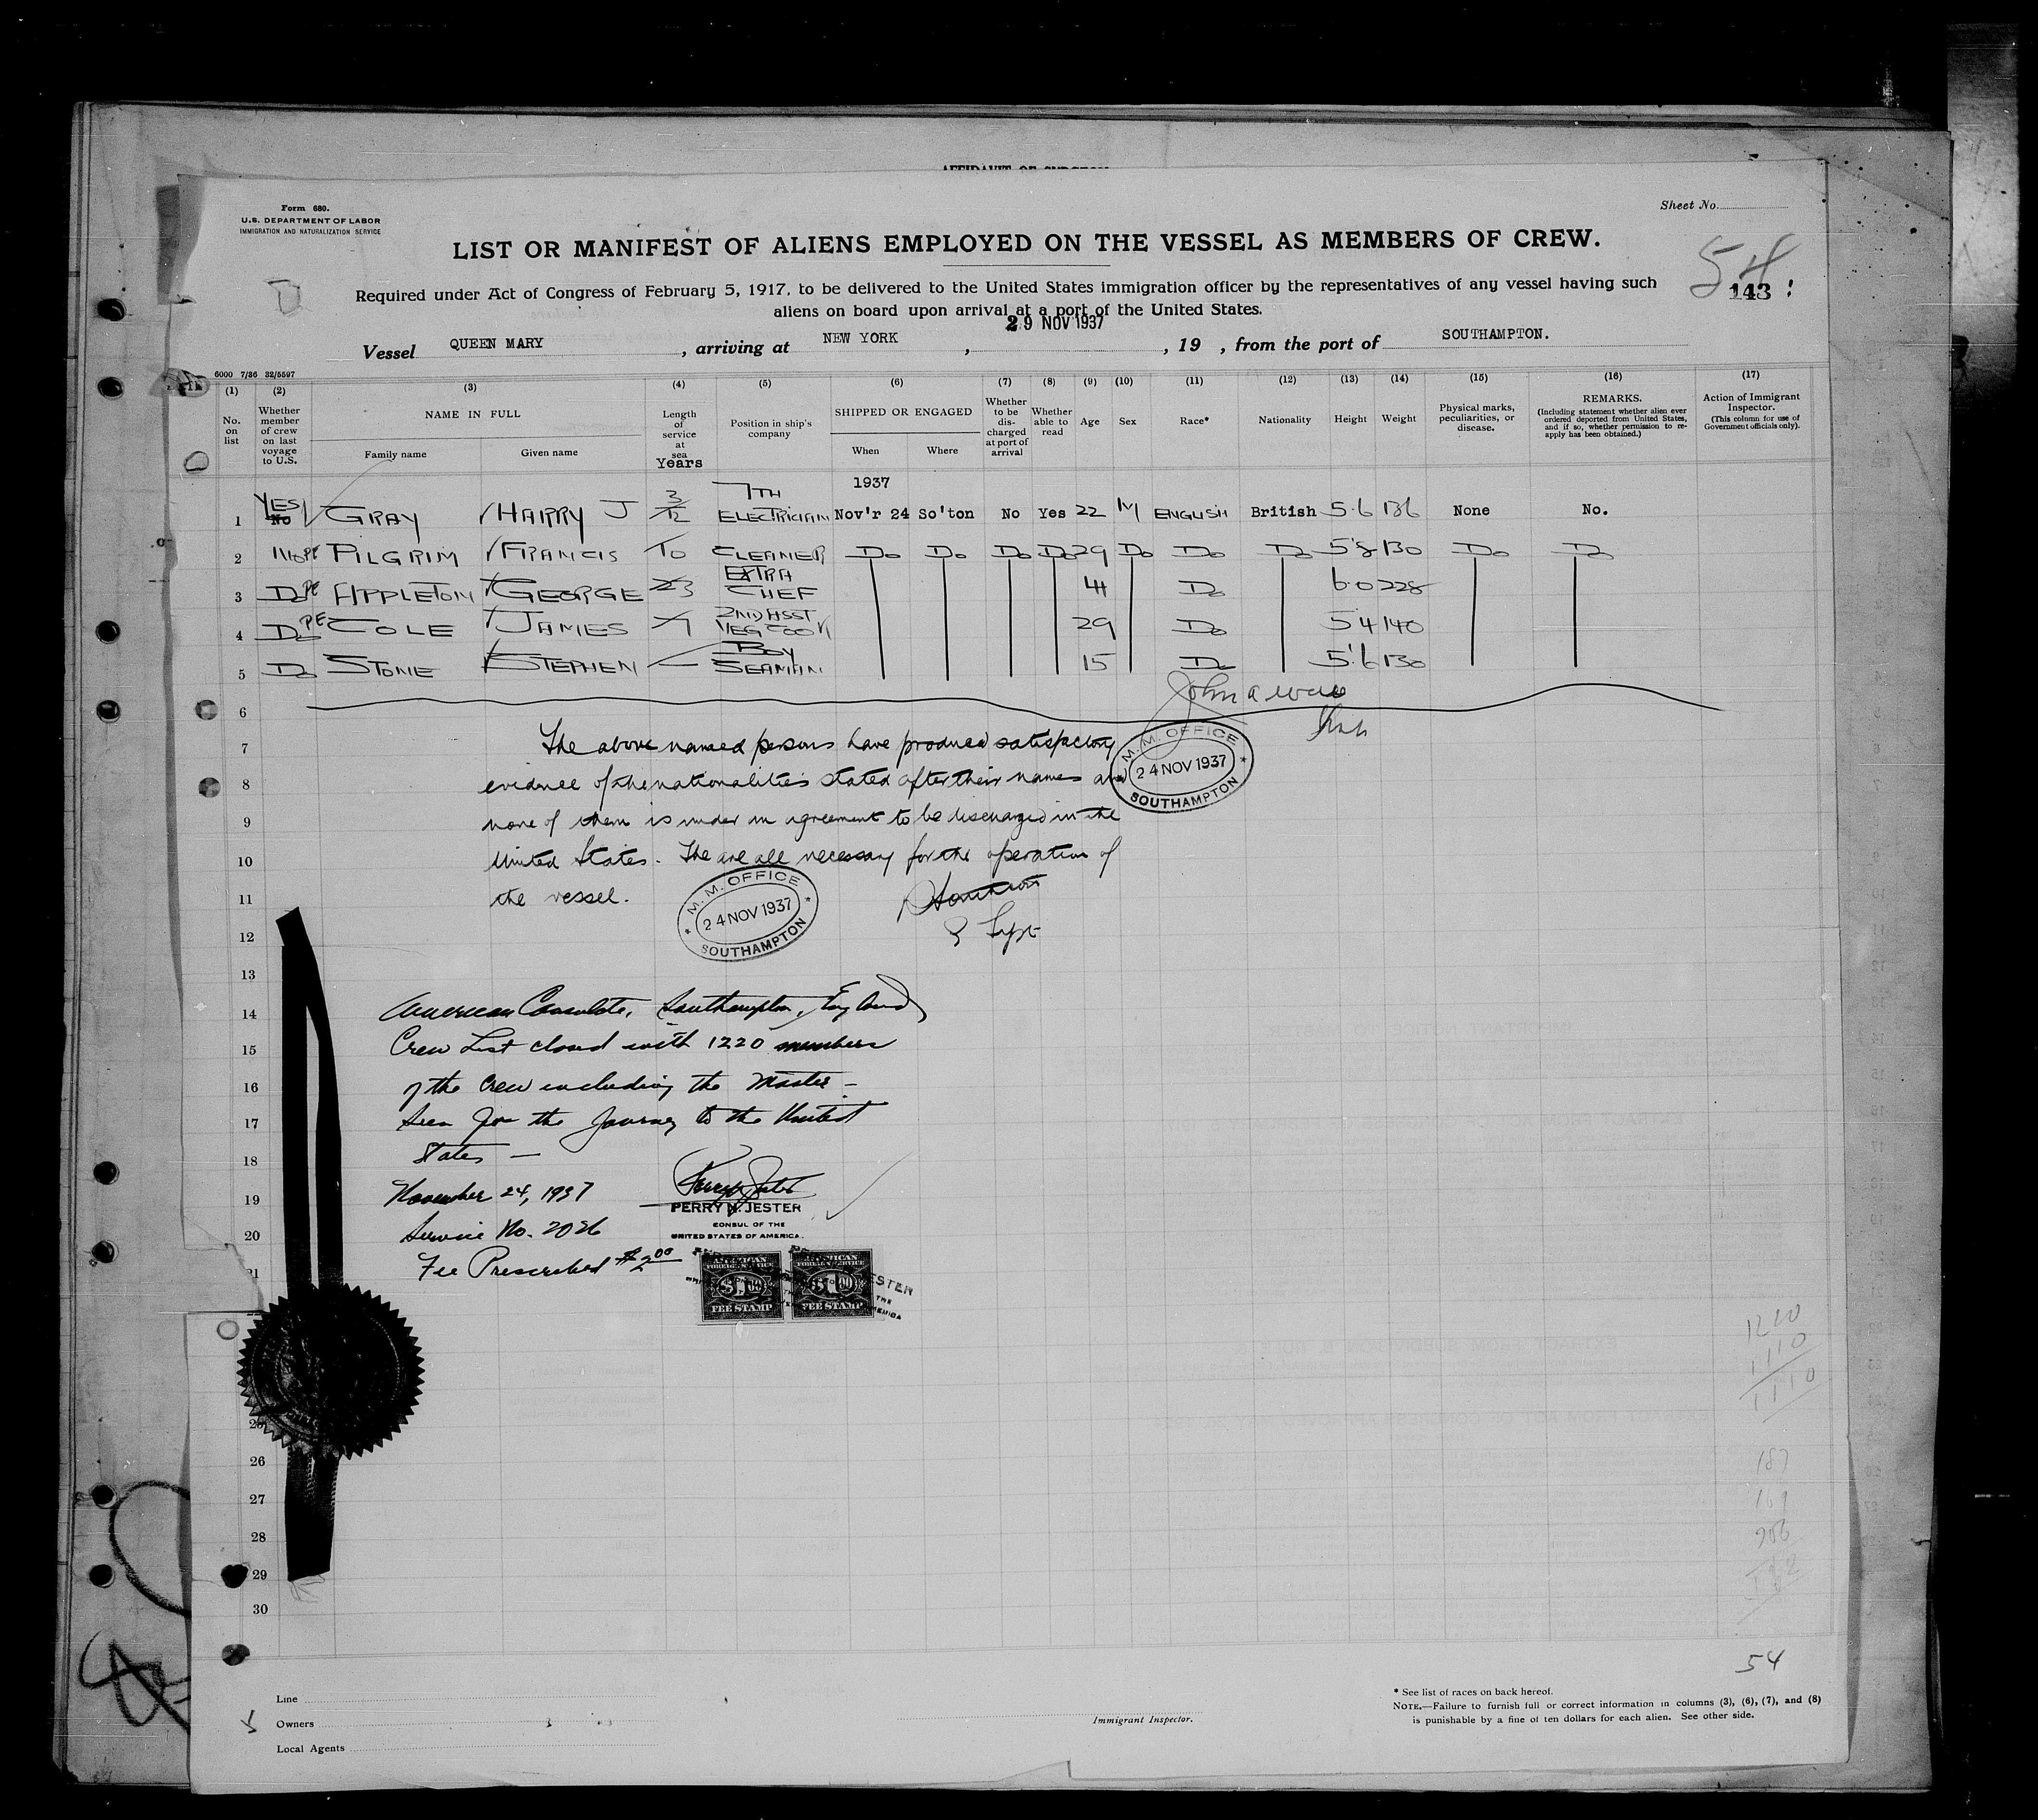 AFFIDAVIT OF SURGEON
Form 680.
U.S. DEPARTMENT OF LABOR
IMMIGRATION AND NATURALIZATION SERVICE
Sheet No.
LIST OR MANIFEST OF ALIENS EMPLOYED ON THE VESSEL AS MEMBERS OF CREW.
54
143
Required under Act of Congress of February 5, 1917, to be delivered to the United States immigration officer by the representatives of any vessel having such
aliens on board upon arrival at a port of the United States.
29 NOV 1937
Vessel QUEEN MARY, arriving at NEW YORK, , 19 , from the port of SOUTHAMPTON.
6000 7/36 32/5597
(1) (2) (3) (4) (5) (6) (7) (8) (9) (10) (11) (12) (13) (14) (15) (16) (17)
No. on list
Whether member of crew on last voyage to U.S.
NAME IN FULL
Family name
Given name
Length of service at sea
Years
Position in ship's company
SHIPPED OR ENGAGED
When
Where
Whether to be discharged at port of arrival
Whether able to read
Age
Sex
Race*
Nationality
Height
Weight
Physical marks, peculiarities, or disease.
REMARKS.
(Including statement whether alien ever ordered deported from United States, and if so, whether permission to reapply has been obtained.)
Action of Immigrant Inspector.
(This column for use of Government officials only).
1937
1 YES No GRAY HARRY J 3/12 7TH ELECTRICIAN Nov'r 24 So'ton No Yes 22 M ENGLISH British 5.6 136 None No.
2 PILGRIM FRANCIS 10 CLEANER Do Do Do Do 29 Do Do Do 5'8 130 Do Do
3 Do APPLETON GEORGE 23 EXTRA CHEF 41 Do 6.0 228
4 Do COLE JAMES 2ND ASST VEG COOK 29 Do 5 4 140
5 Do STONE STEPHEN — BOY SEAMAN 15 Do 5'.6 130
6
7 The above named persons have produced satisfactory
8 evidence of the nationalities stated after their names and
9 none of them is under an agreement to be discharged in the
10 United States. The are all necessary for the operation of
11 the vessel.
M. M. OFFICE
24 NOV 1937
SOUTHAMPTON
M. M. OFFICE
24 NOV 1937
SOUTHAMPTON
12
13
14 American Consulate, Southampton, England
15 Crew List closed with 1220 members
16 of the Crew including the Master —
17 Seen for the Journey to the United
18 States —
19 November 24, 1937
PERRY N. JESTER
CONSUL OF THE
UNITED STATES OF AMERICA.
20 Service No. 2026
21 Fee Prescribed $2.00
AMERICAN
FOREIGN SERVICE
$1.00
FEE STAMP
AMERICAN
FOREIGN SERVICE
$1.00
FEE STAMP
1220
1110
1110
187
169
26
27
28
29
30
54
Line
Owners
Local Agents
Immigrant Inspector.
* See list of races on back hereof.
NOTE.—Failure to furnish full or correct information in columns (3), (6), (7), and (8)
is punishable by a fine of ten dollars for each alien. See other side.